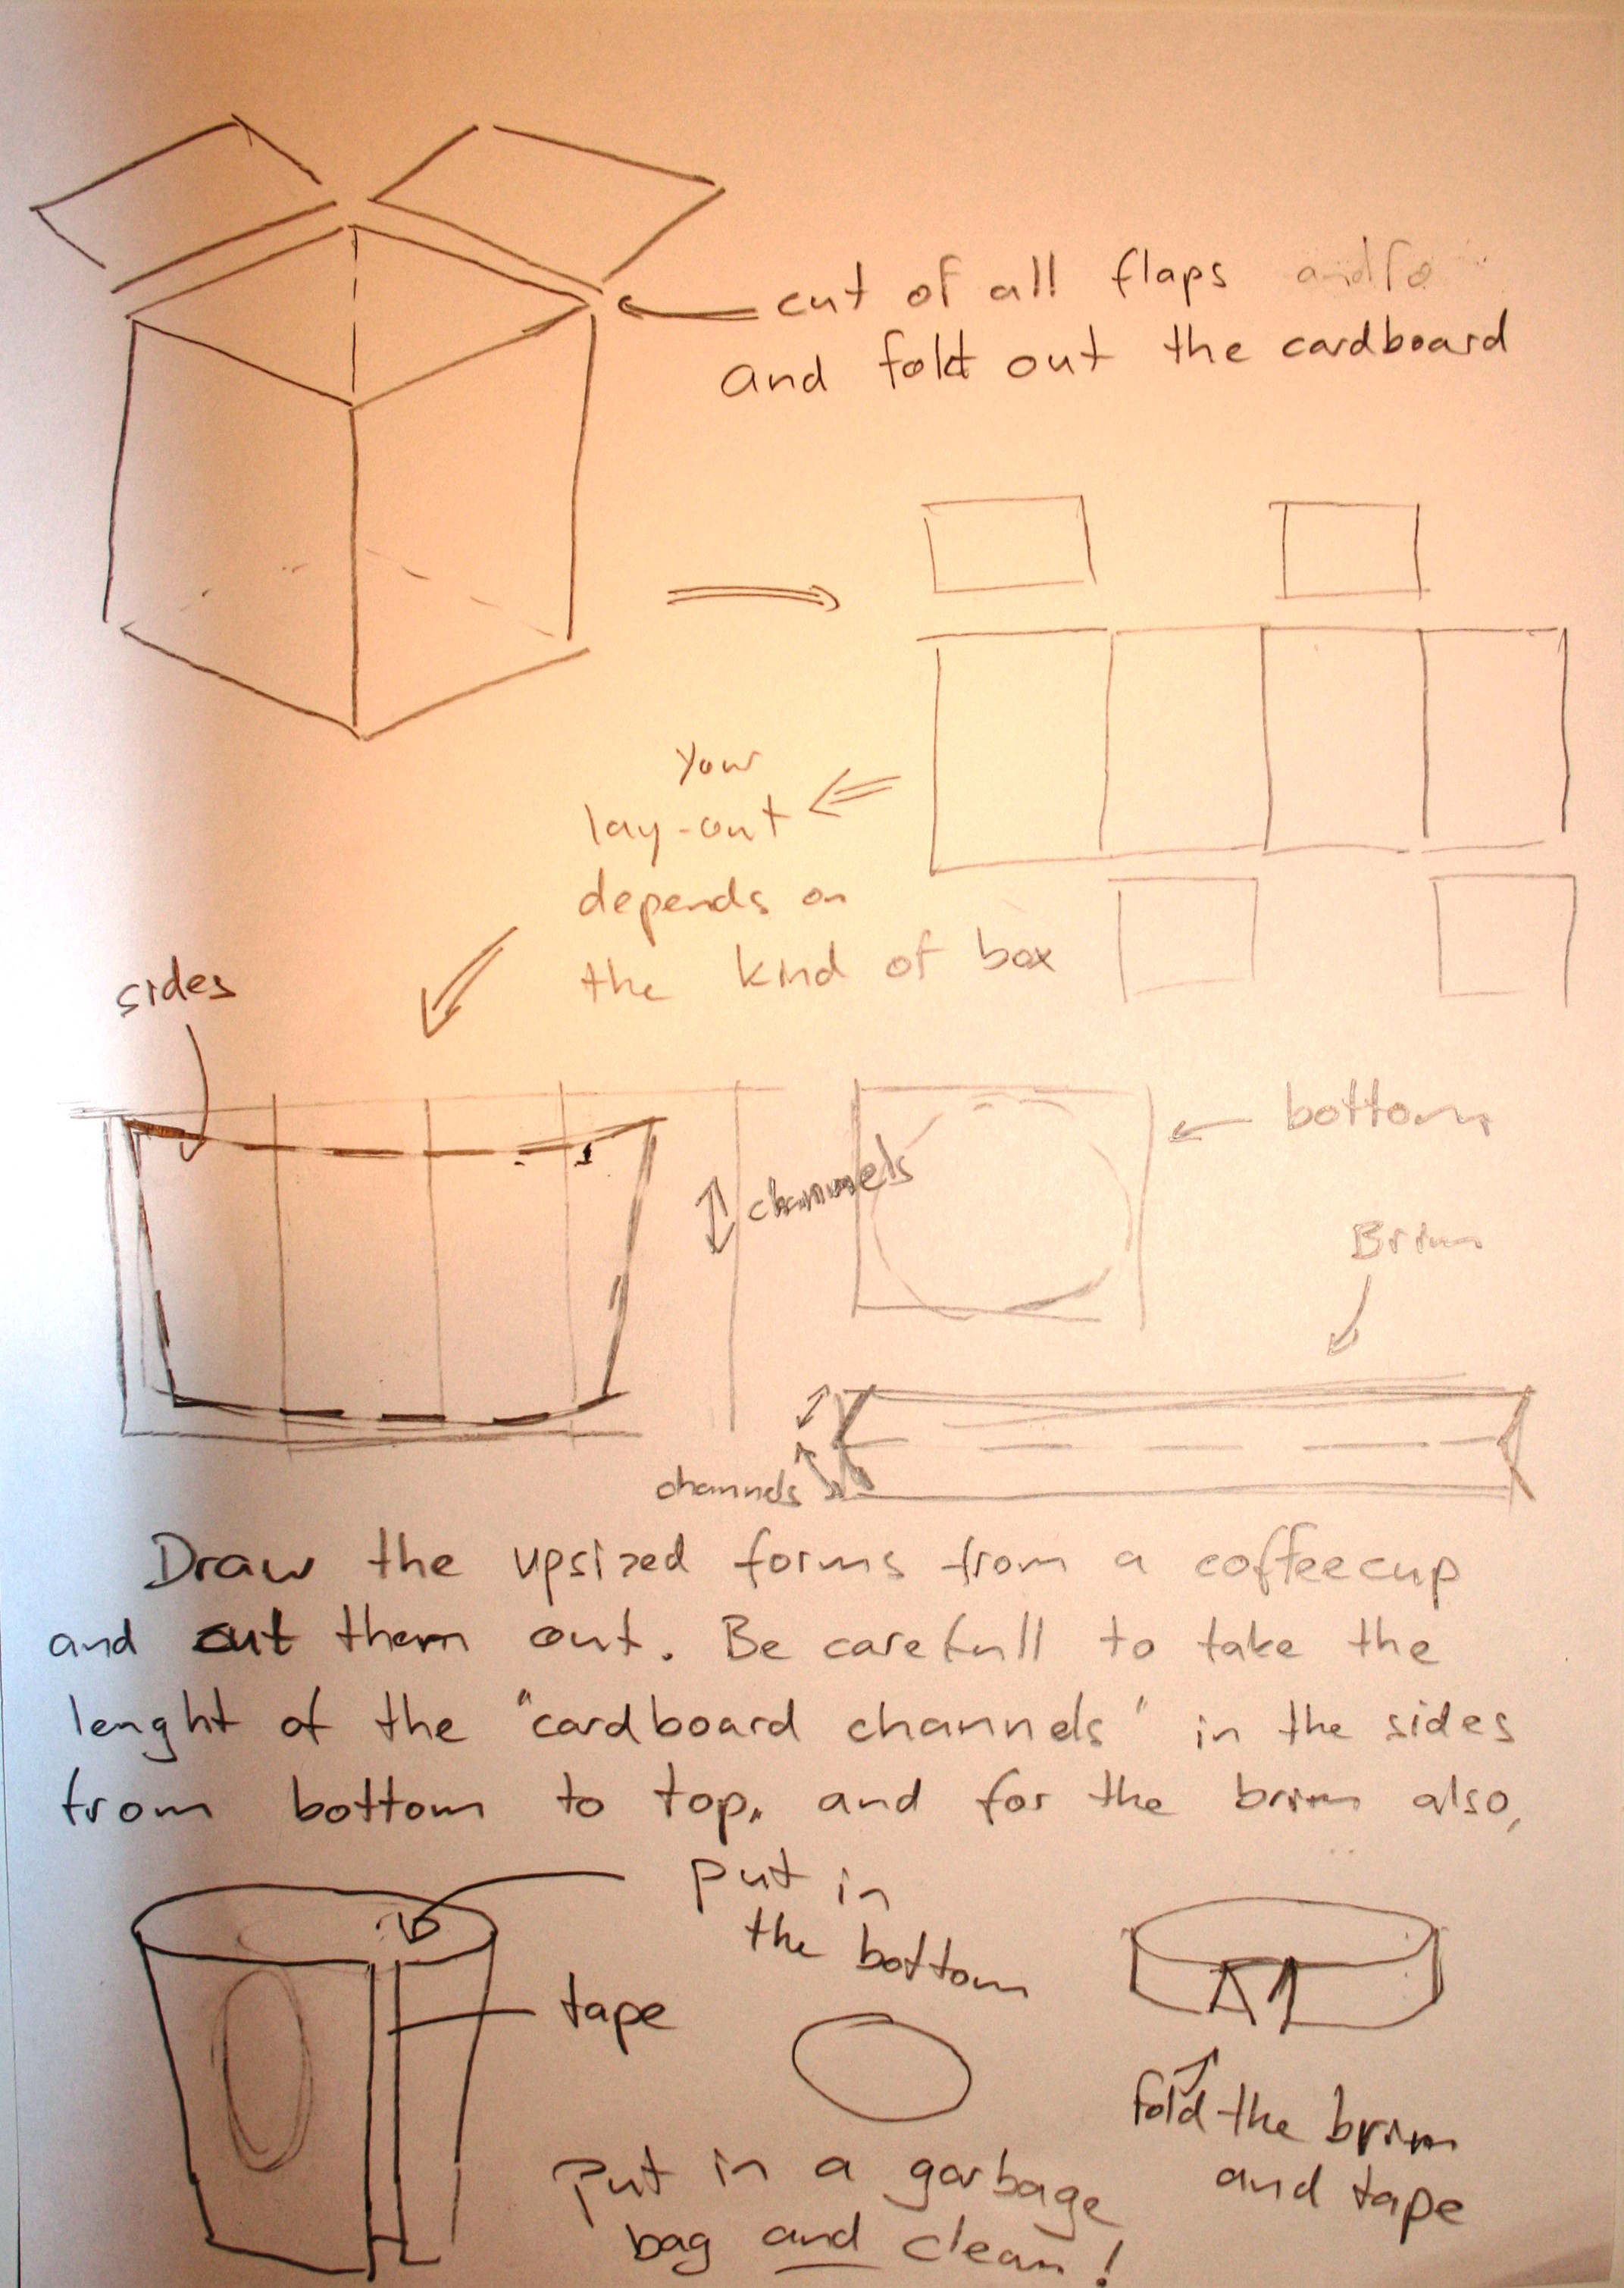 cut of all flaps
and fold out the cardboard
Your
lay-out
depends on
the kind of box
sides
channels
bottom
Brim
channels
Draw the upsized forms from a coffeecup
and cut them out. Be carefull to take the
lenght of the "cardboard channels" in the sides
from bottom to top. and for the brim also,
put in
the bottom
tape
fold the brim
and tape
Put in a garbage
bag and clean!